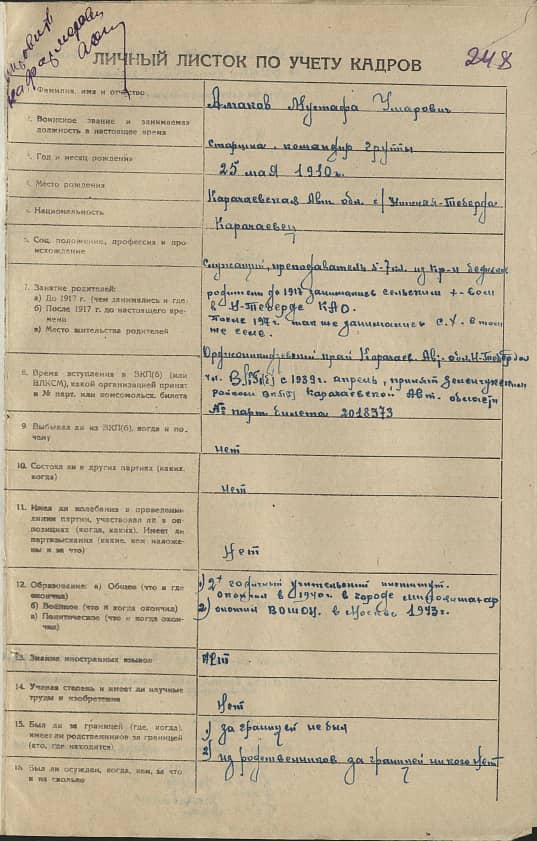 248
ЛИЧНЫЙ ЛИСТОК ПО УЧЕТУ КАДРОВ
Фамилия, имя и отчество
Мустафа Умарович
2. Воинское звание и занимаемая
должность в настоящее время
Старшина, командир группы
3. Год и месяц рождения
25 мая 1910 г.
4. Место рождения
Карачаевская Авт. обл. с/ Нижняя-Теберда
Национальность
Карачаевец
Соц. положение, профессия и про-
исхождение
Служащий, преподаватель 5-7 кл. из кр-н
7. Занятие родителей:
а) До 1917 г. (чем занимались и где)
б) После 1917 г. до настоящего вре-
мени
в) Место жительства родителей
родители до 1917 занимались сельским х-вом
в Н-Теберде КАО.
После 1917 г. так же занимались с.х. в том
же селе.
8. Время вступления в ВКП(б) (или
ВЛКСМ), какой организацией принят
и № парт. или комсомольск. билета
Орджоникидзевский край Карачаев. Авт. обл. Н-Теберда
чл. ВКП(б) с 1939 г. апрель, принят Зеленчукским
райком ВКП(б) Карачаевской Авт. области
№ парт билета 2018373
9. Выбывал ли из ВКП(б), когда и по-
чему
нет
10. Состоял ли в других партиях (каких,
когда)
нет
11. Имел ли колебания в проведении
линии партии, участвовал ли в оп-
позициях (когда, каких). Имеет ли
партвзыскания (какие, кем наложе-
ны и за что)
Нет
12. Образование: а) Общее (что и где
окончил)
б) Военное (что и когда окончил)
в) Политическое (что и когда окон-
чил)
1) 2х годичный учительский институт.
окончил в 1940 г. в городе
2) окончил ВОШОН. в Москве 1943 г.
13. Знание иностранных языков
нет
14. Ученая степень и имеет ли научные
труды и изобретения
Нет
15. Был ли за границей (где, когда),
имеет ли родственников за границей
(кто, где находится)
1) за границей не был
2) из родственников за границей никого нет
16. Был ли осужден, когда, кем, за что
и на сколько